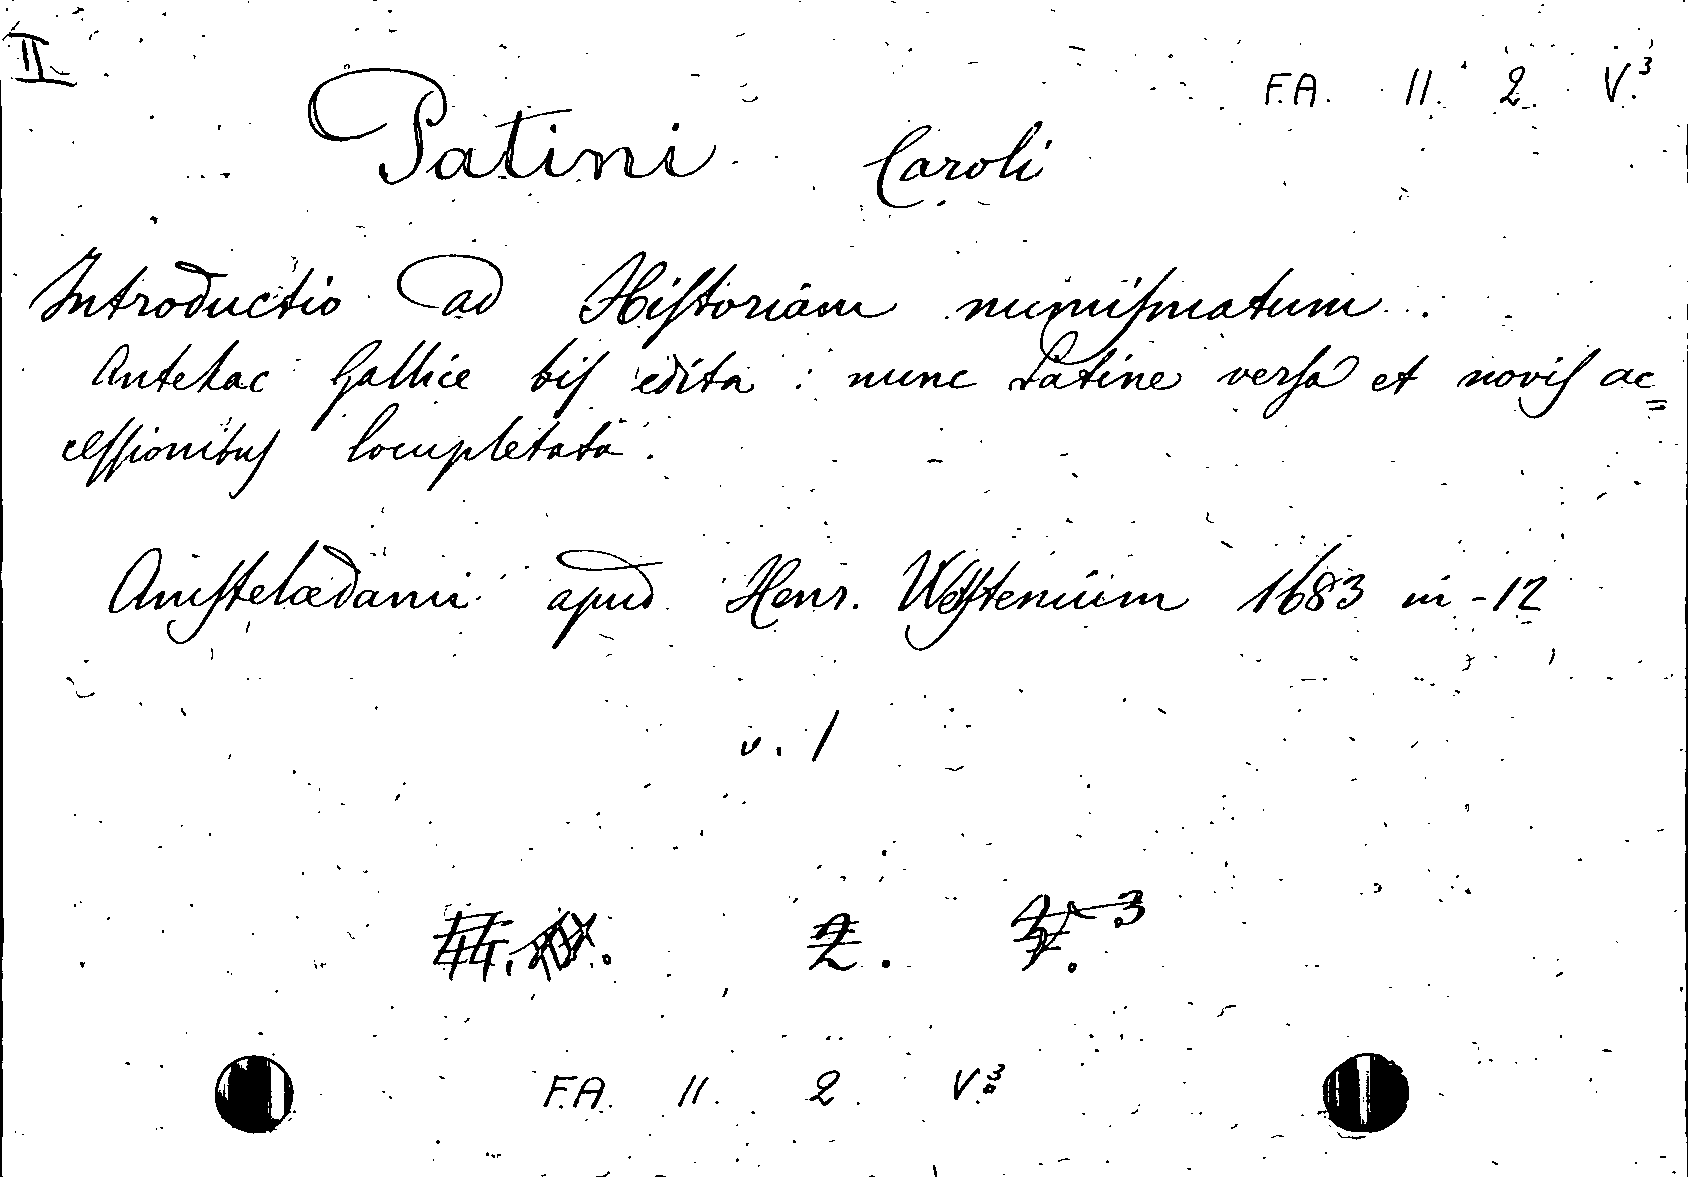 II
F.A. 11. 2. V.³
Patini Caroli
Introductio ad Hiſtoriam numiſmatum.
Antehac Gallice biſ edita: nunc Latine verſa et noviſ ac=
ceſſionibuſ locupletata.
Amſtelædami apud Henr. Wetſtenium 1683 in-12
v. 1
2. V.³
F.A. 11. 2. V.³